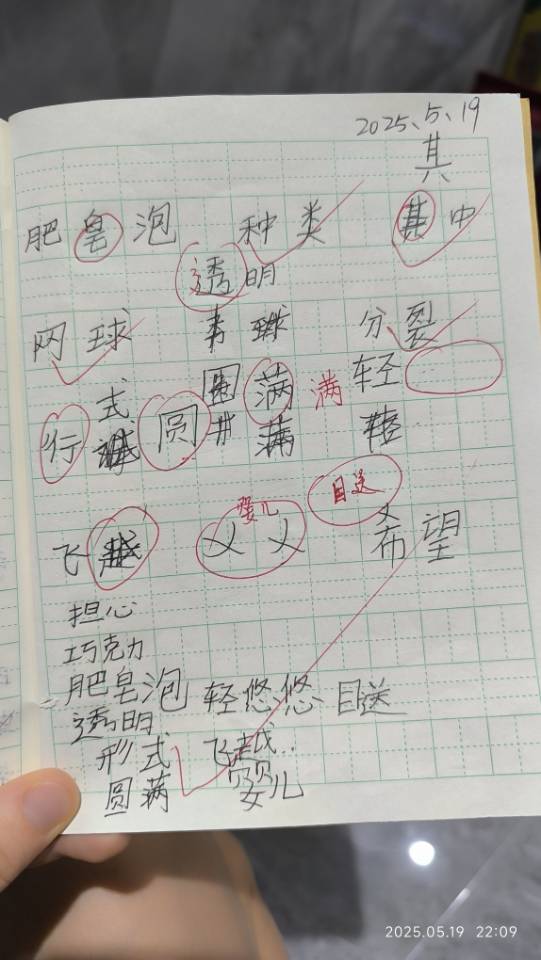 2025、5、19
其
肥皂泡 种类 其中
透明
网球 球 分裂
式 圆 满 满 轻
行 圆
目送
婴儿
飞 乂 乂 希望
担心
巧克力
肥皂泡 轻悠悠 目送
透明
形式 飞越..
圆满 婴儿
2025.05.19 22:09